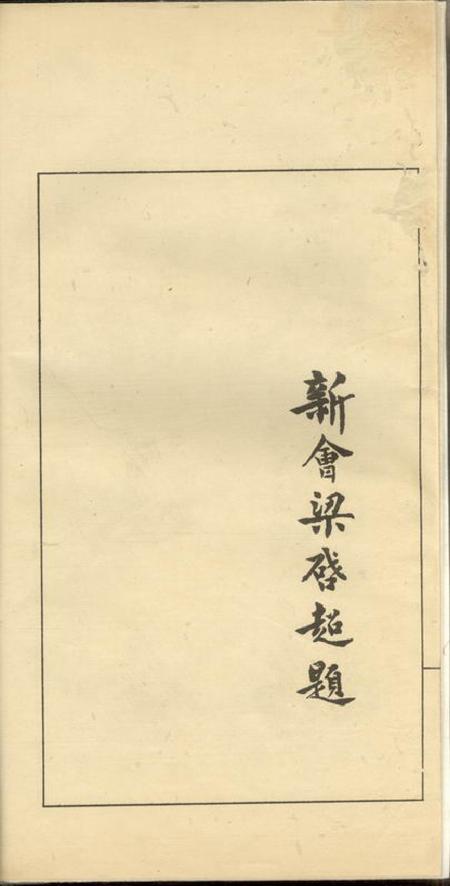 新會梁啓超題